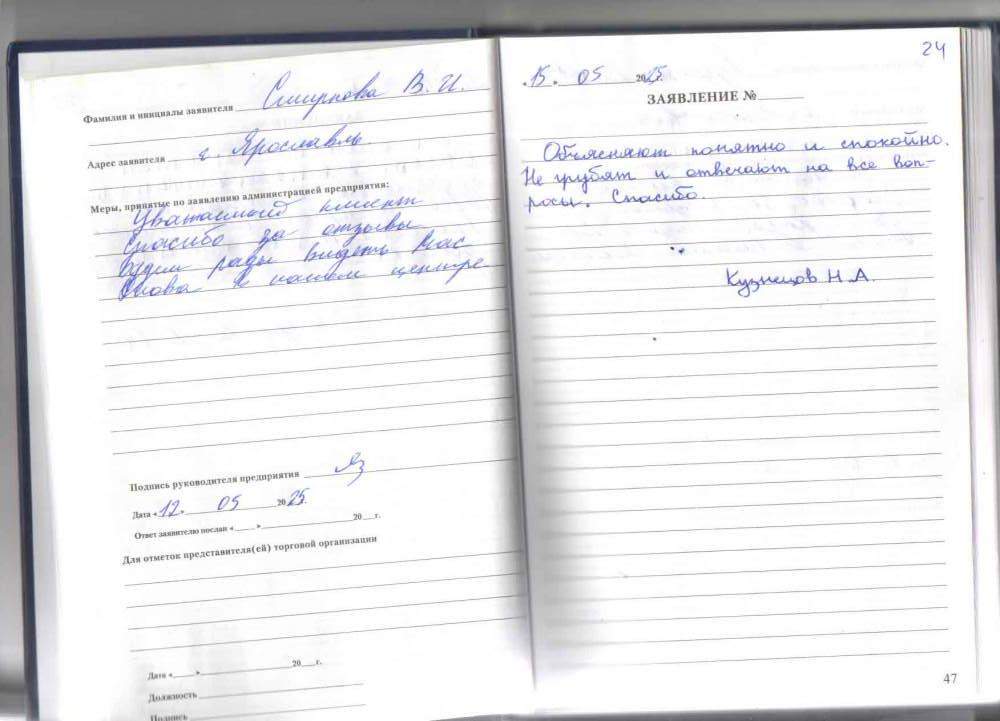 Фамилия и инициалы заявителя Смирнова В. И.
Адрес заявителя г. Ярославль.
Меры, принятые по заявлению администрацией предприятия:
Уважаемый клиент
Спасибо за отзывы
будем рады видеть Вас
снова в нашем центре
Подпись руководителя предприятия
Дата «12» 05 2025.
Ответ заявителю послан «___»___ 20__г.
Для отметок представителя(ей) торговой организации
Дата «___»___ 20__г.
Должность
Подпись
24
«15» 05 2025г.
ЗАЯВЛЕНИЕ №
Объясняют понятно и спокойно.
Не грубят и отвечают на все воп-
росы. Спасибо.
Кузнецов Н.А.
47